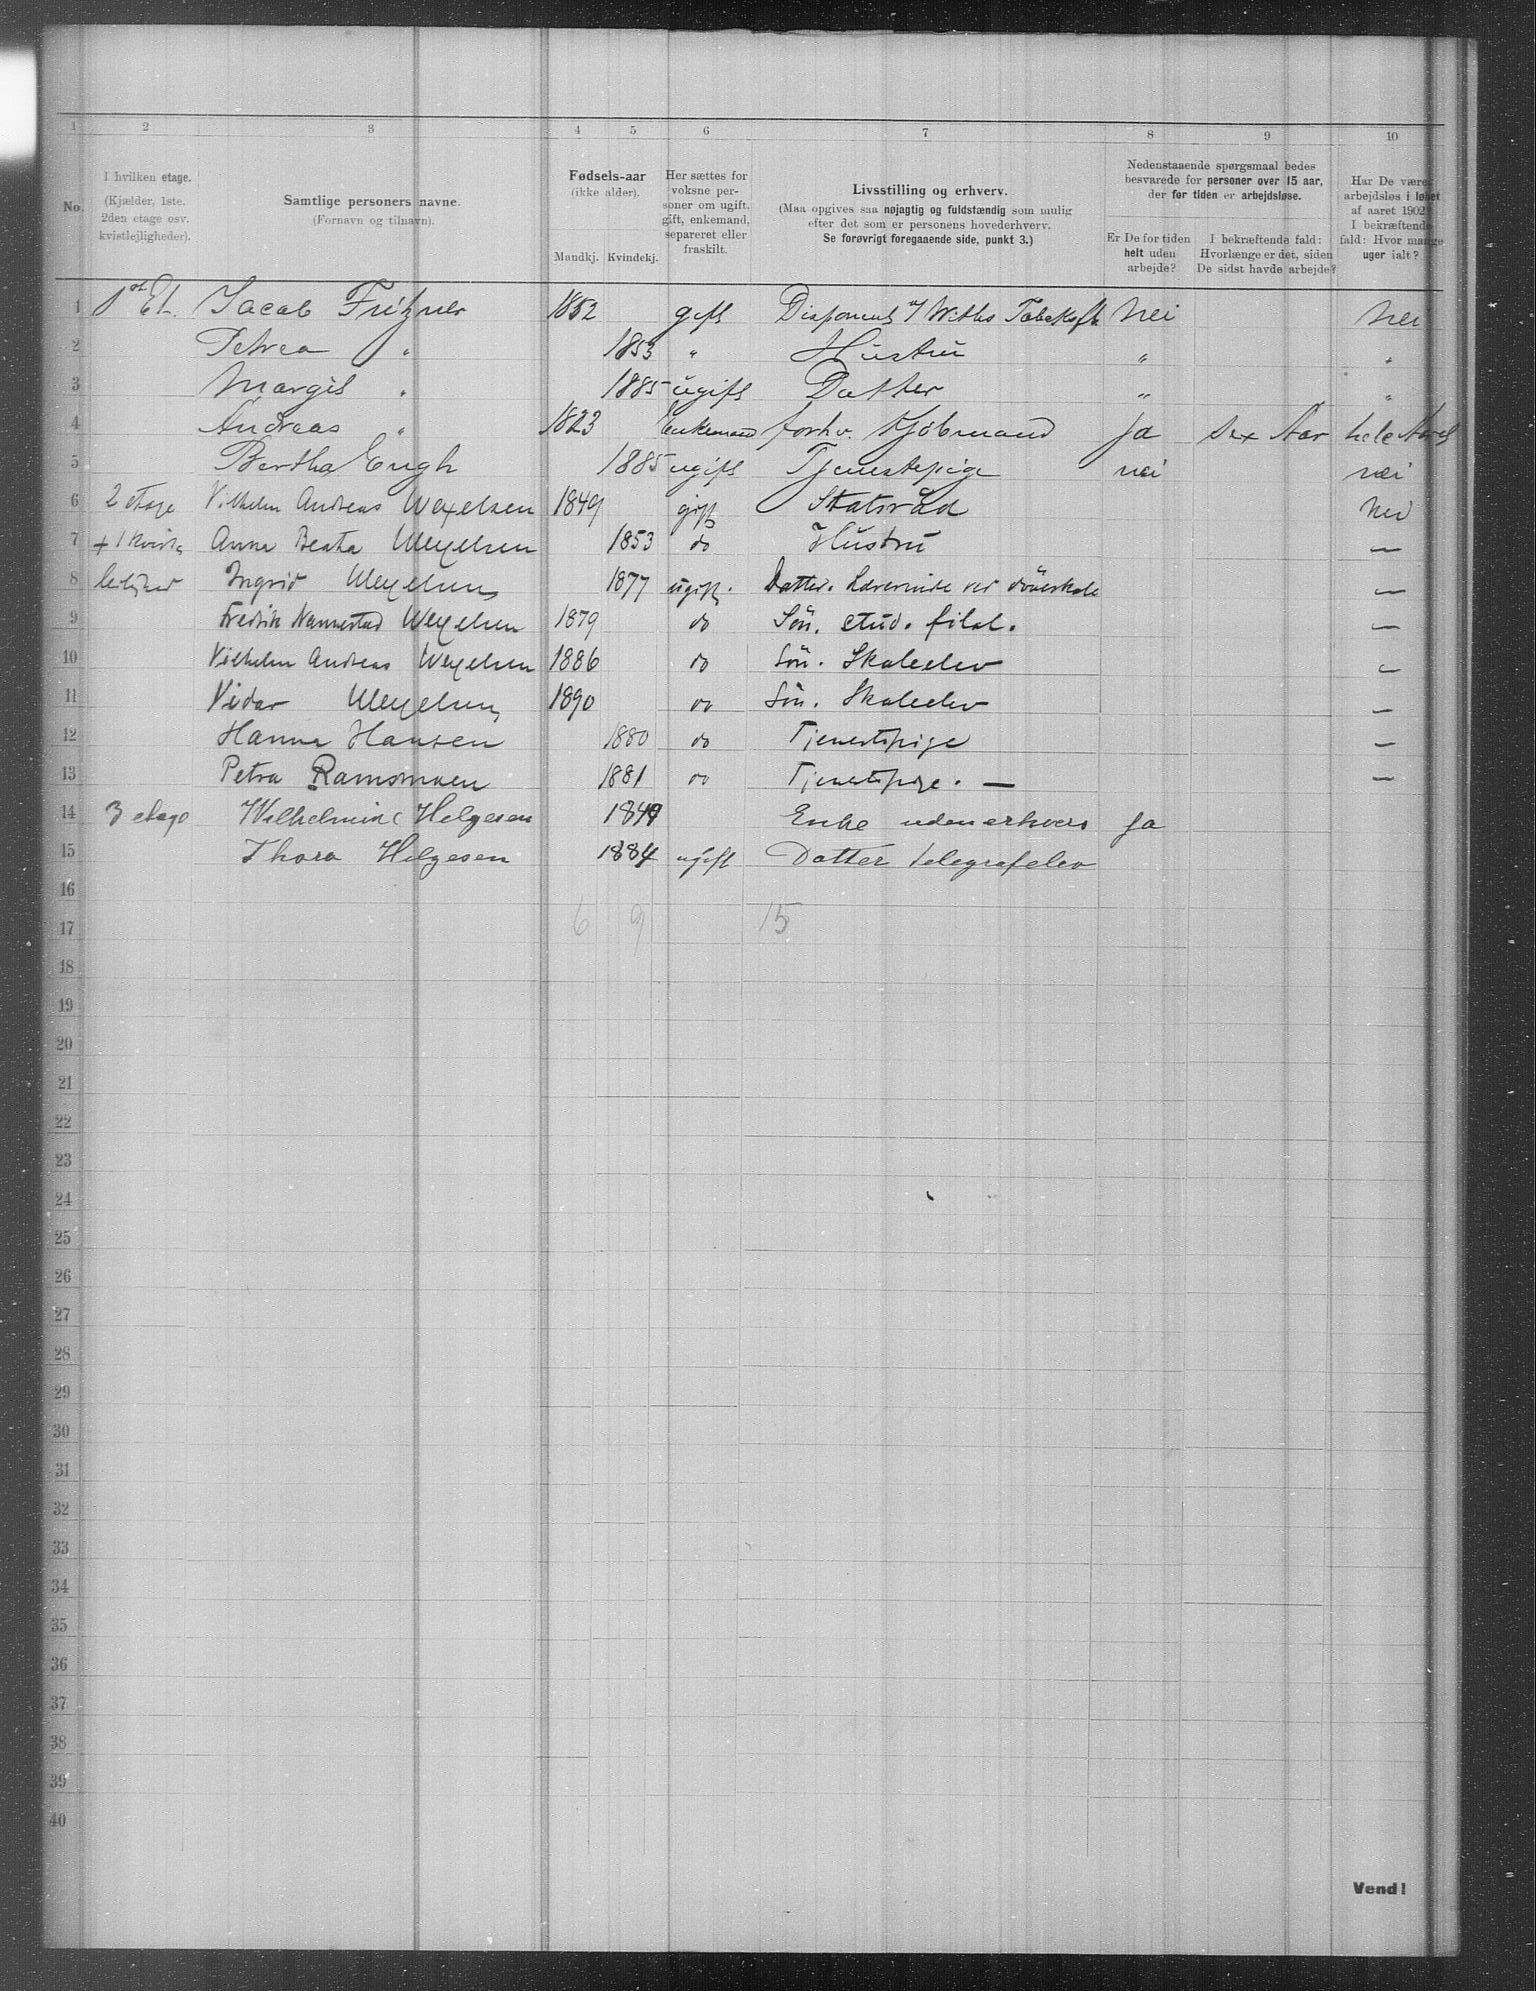 1 2 3 4 5 6 7 8 9 10
No.
I hvilken etage.
(Kjælder, 1ste.
2den etage osv.
kvistlejligheder).
Samtlige personers navne.
(Fornavn og tilnavn).
Fødsels-aar
(ikke alder).
Mandkj. Kvindekj.
Her sættes for
voksne per-
soner om ugift,
gift, enkemand,
separeret eller
fraskilt.
Livsstilling og erhverv.
(Maa opgives saa nøjagtig og fuldstændig som mulig
efter det som er personens hovederhverv.
Se forøvrigt foregaaende side, punkt 3.)
Nedenstaaende spørgsmaal bedes
besvarede for personer over 15 aar,
der for tiden er arbejdsløse.
Er De for tiden
helt uden
arbejde?
I bekræftende fald:
Hvorlænge er det, siden
De sidst havde arbejde?
Har De været
arbejdsløs i løbet
af aaret 1902?
I bekræftende
fald: Hvor mange
uger ialt?
1 1st Et. Jacob Fritzner 1852 gift Disponent v/ Withs Tobaksfk nei nei
2 Petrea " 1853 " Hustru " "
3 Margit " 1885 ugift Datter " "
4 Andreas " 1823 Enkemand forhv. Kjøbmand ja sex Aar hele Aaret
5 Bertha Engh 1885 ugift Tjenestepige nei nei
6 2 etage Vilhelm Andreas Wexelsen 1849 gift Statsråd Nei
7 + 1 kvist Anna Beata Wexelsen 1853 do Hustru —
8 Ingrid Wexelsen 1877 ugift. Datter. Lærerinde ved —
9 Fredrik Nannestad Wexelsen 1879 do Søn. stud. filol. —
10 Vilhelm Andreas Wexelsen 1886 do Søn. Skoleelev —
11 Vidar Wexelsen 1890 do Søn. Skoleelev —
12 Hanna Hansen 1880 do Tjenestpige —
13 Petra Ramsmoen 1881 do Tjenestpige. — —
14 3 etage Wilhelmine Helgesen Enke uden erhverv ja
15 Thora Helgesen 1884 ugift Datter telegrafelev
16
17 6 9 15
18
19
20
21
22
23
24
25
26
27
28
29
30
31
32
33
34
35
36
37
38
39
40
Vend!